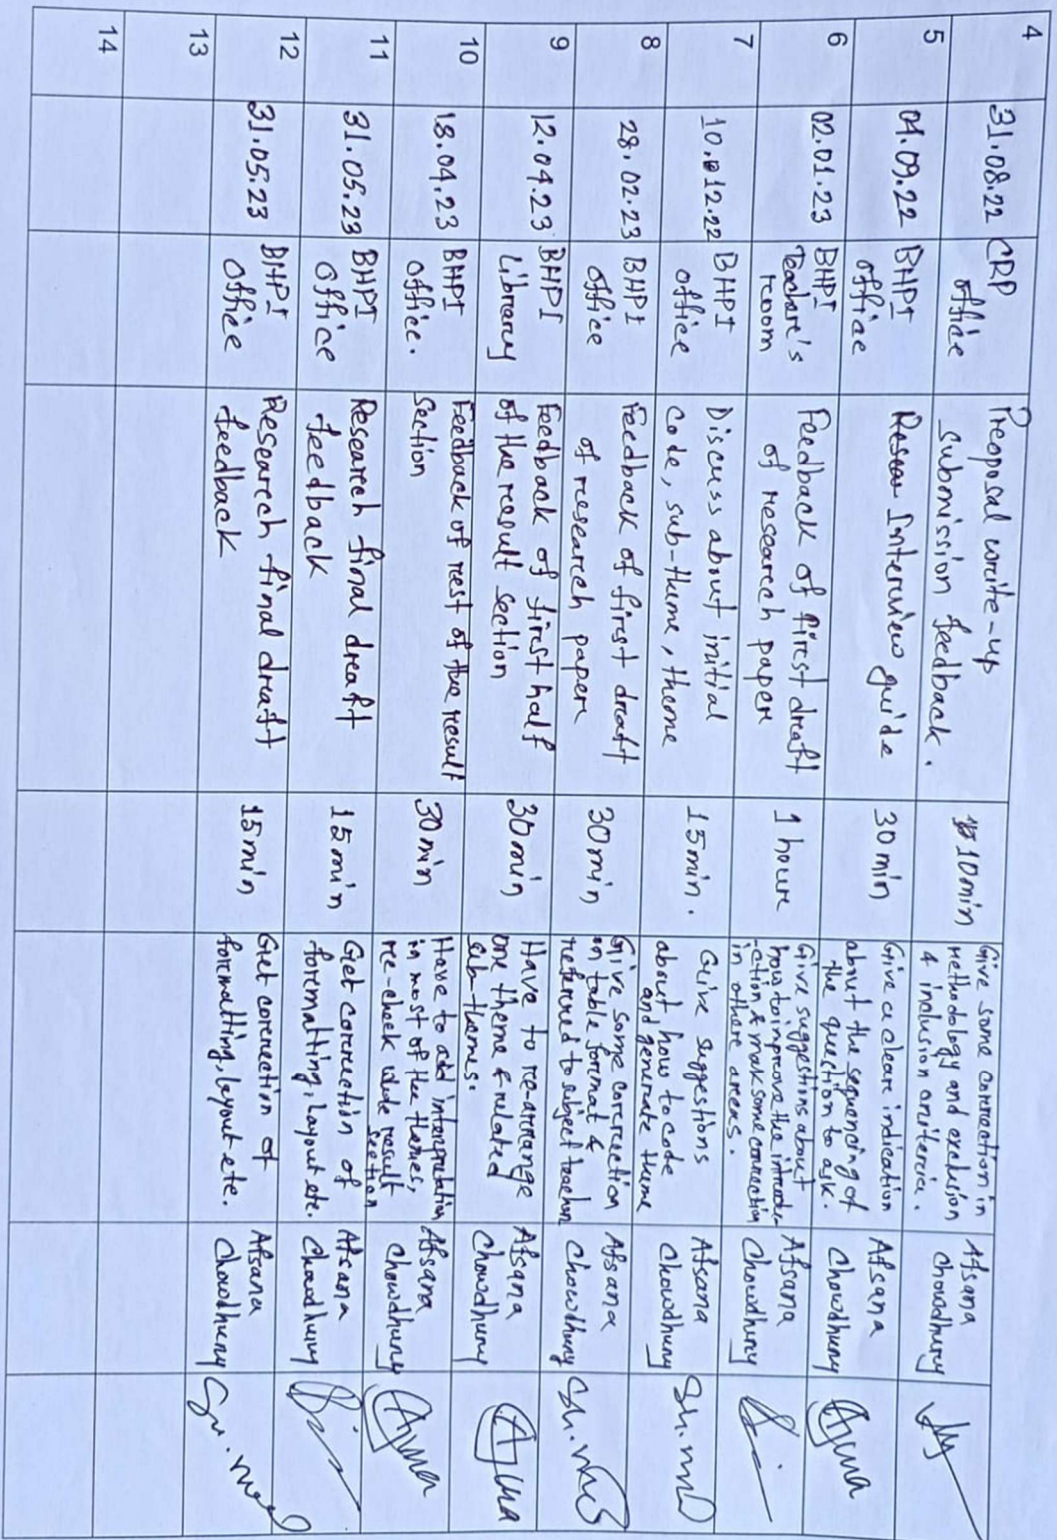 4 31.08.22 CRP office Preoposal write-up submission feedback. 10min Give some correection in methodology and exclusion & inclusion creitercia. Afsana Chowdhurey
5 04.09.22 BHPI office Interview guide 30 min Give a cleare indication about the sequencing of the question to ask. Afsana Chowdhury
6 02.01.23 BHPI Teachere's room Feedback of first draft of research paper 1 houre Give suggestions about how to improve the introdu-ction & mak some correction in othere areas. Afsana Chowdhury
7 10.12.22 BHPI office Discuss about initial code, sub-theme, theme 15min. Give suggestions about how to code and generate theme Afsana Chowdhury
8 28.02.23 BHPI office Feedback of first draft of research paper 30min Give some correction on table format & referred to subject teacher Afsana Chowdhury
9 12.04.23 BHPI Library Feedback of first half of the result section 30min Have to re-arrange one theme & related sub-themes. Afsana Chowdhury
10 18.04.23 BHPI office. Feedback of rest of the result section 30min Have to add interpretation in most of the themes, re-check whole result section Afsana Chowdhury
11 31.05.23 BHPI office Research final draft feedback 15min Get correction of formatting, layout etc. Afsana Chowdhury
12 31.05.23 BHPI office Research final draft feedback 15min Get correction of formatting, layout etc. Afsana Chowdhury
13
14